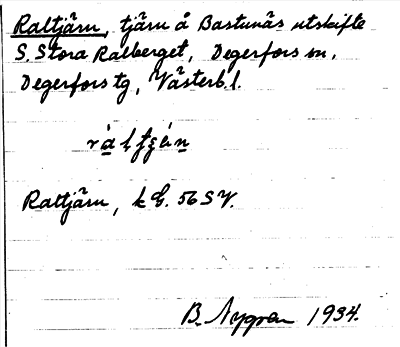 Raltjärn, tjärn å Bastunäs utskifte
S. Stora Ralberget, Degerfors sn,
Degerfors tg, Västerb.l.
Raltjärn, k bl. 56 SV.
B. Nygren 1934.